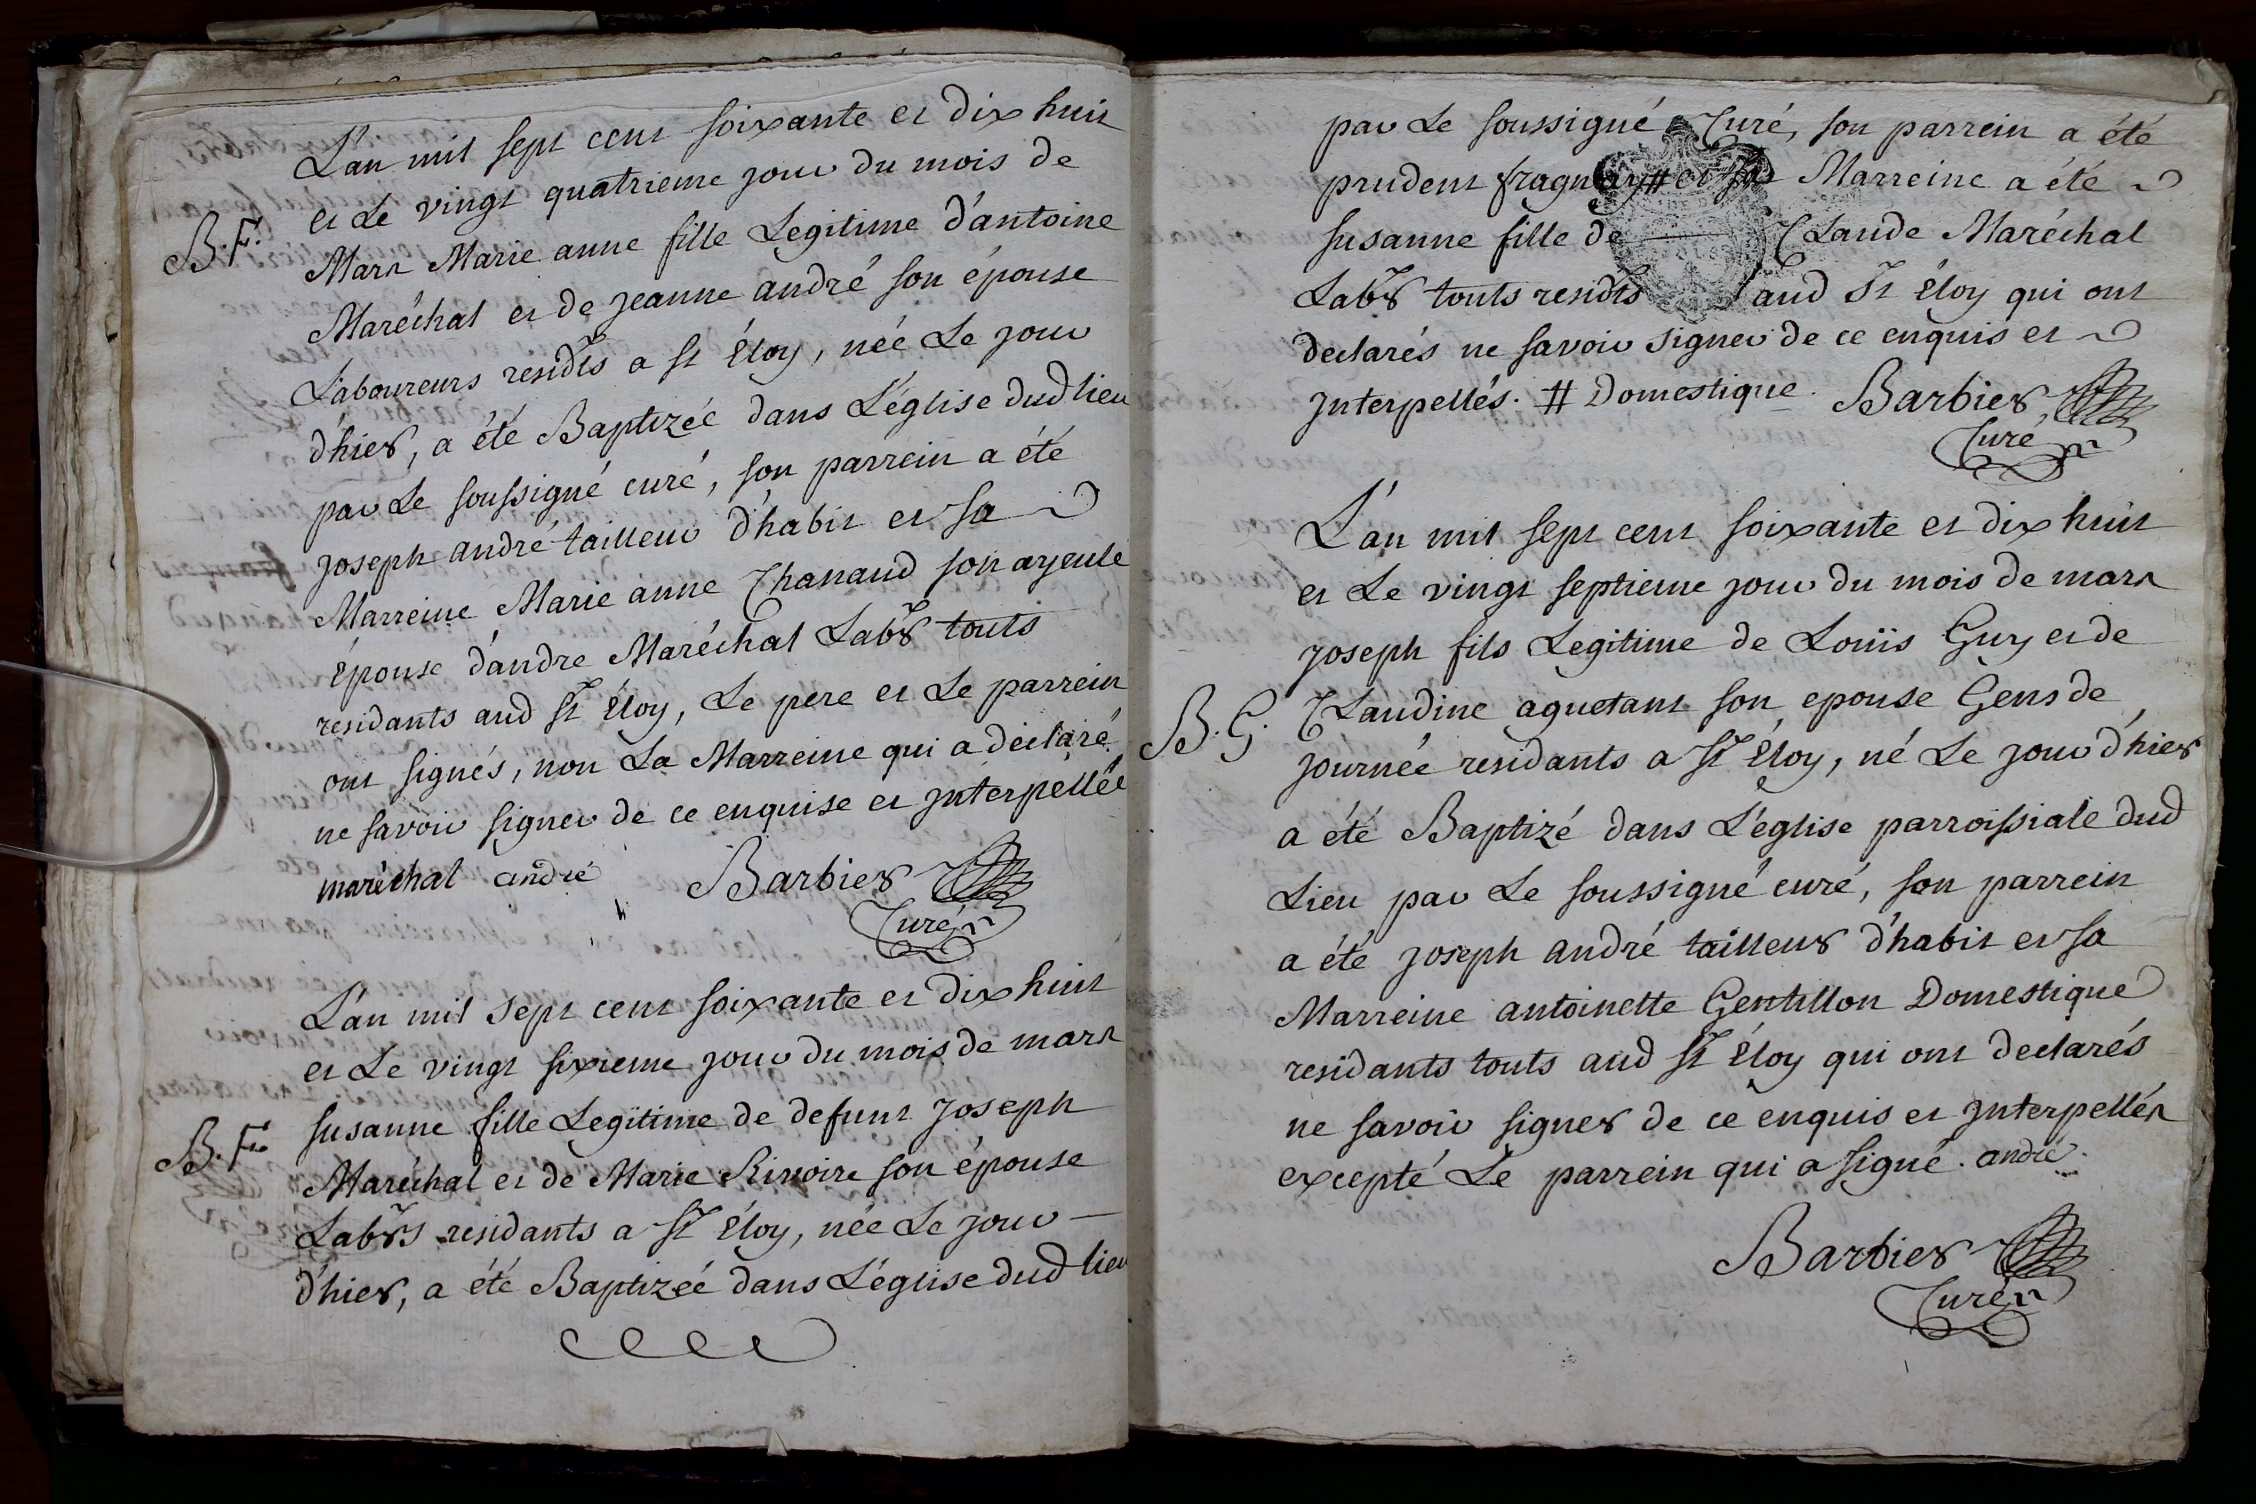 L'an mil sept cent soixante et dix huit
et Le vingt quatrieme jour du mois de
B. F. Mars Marie anne fille Legitime d'antoine
Maréchal et de jeanne andré son épouse
Laboureurs residts a St Éloy, née Le jour
d'hier, a été Baptizée dans L'église dud lieu
par Le soussigné curé, son parrein a été
joseph andré tailleur d'habit et sa
Marreine Marie anne Chanaud son ayeule
épouse d'andre Maréchal Labr touts
residants aud St Éloy, Le pere et Le parrein
ont signés, non La Marreine qui a declaré
ne savoir signer de ce enquise et jnterpellée
maréchal andré Barbier
Curé
L'an mil sept cent soixante et dix huit
et Le vingt sixieme jour du mois de mars
B. F. susanne fille Legitime de defunt joseph
Maréchal et de Marie Rivoire son épouse
Labrs residants a St Éloy, née Le jour
d'hier, a été Baptizée dans L'église dud lieu
par Le soussigné Curé, son parrein a été
prudent fragnay # et sa Marreine a été
susanne fille de Claude Maréchal
Labr touts residts aud St Éloy qui ont
declarés ne savoir signer de ce enquis et
jnterpellés. # Domestique. Barbier
Curé
L'an mil sept cent soixante et dix huit
et Le vingt septieme jour du mois de mars
joseph fils Legitime de Louïs Guy et de
B. G. Claudine aguetant son epouse Gens de
journée residants a St Éloy, né Le jour d'hier
a été Baptizé dans L'église parroissiale dud
Lieu par Le soussigné curé, son parrein
a été joseph andré tailleur d'habit et sa
Marreine antoinette Gentillon Domestique
residants touts aud St Éloy qui ont declarés
ne savoir signer de ce enquis et jnterpellés
excepté Le parrein qui a signé. andré.
Barbier
Curé